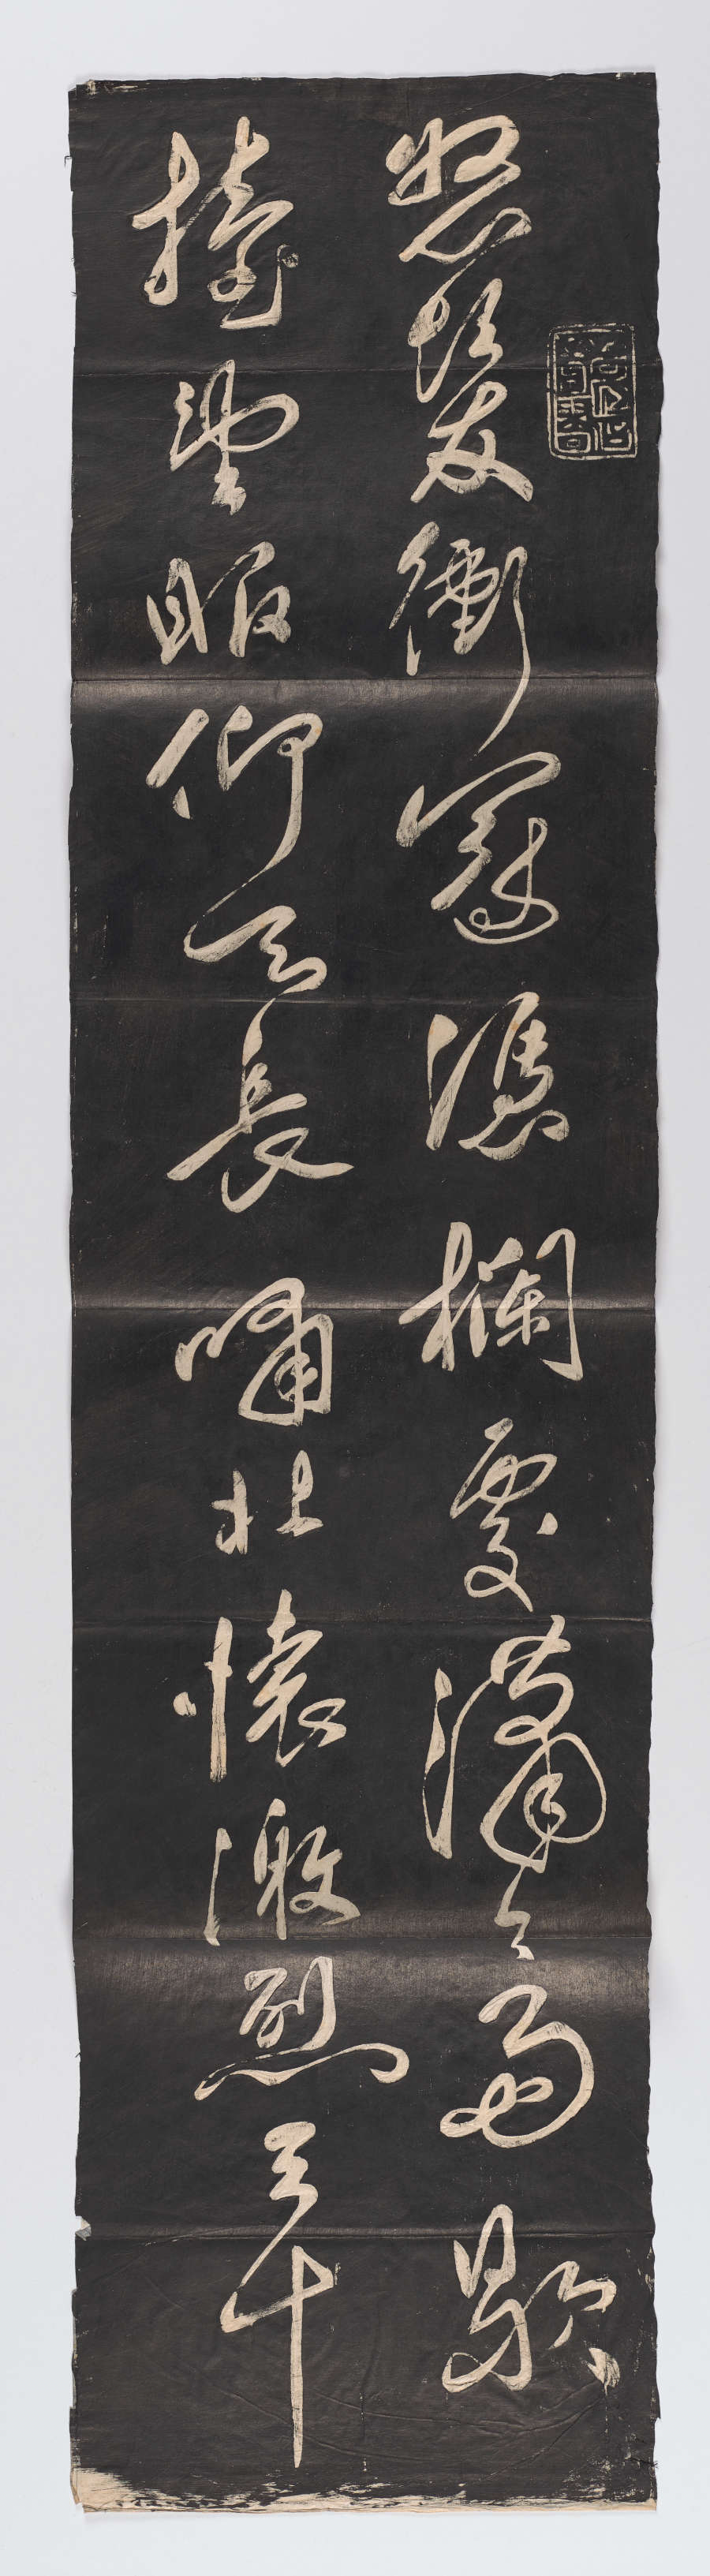 怒髮衝冠凭欄處瀟々雨歇
擡望眼仰天長嘯壯懷激烈三十